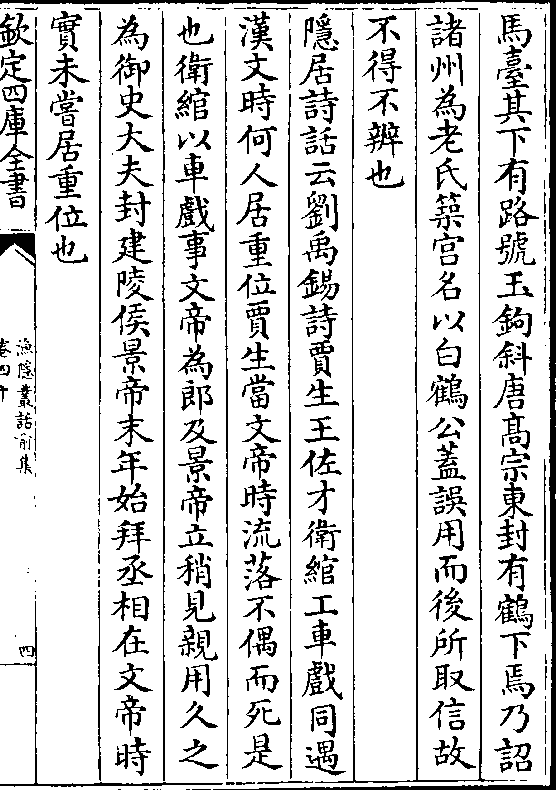 馬臺其下有路號玉鉤斜唐髙宗東封有鶴下焉乃詔
諸州為老氏築宫名以白鶴公蓋誤用而後所取信故
不得不辨也
隱居詩話云劉禹錫詩賈生王佐才衛綰工車戲同遇
漢文時何人居重位賈生當文帝時流落不偶而死是
也衛綰以車戲事文帝為郎及景帝立稍見親用久之
為御史大夫封建陵侯景帝末年始拜丞相在文帝時
實未嘗居重位也
欽定四庫全書
漁隱叢話前集
卷四十
四